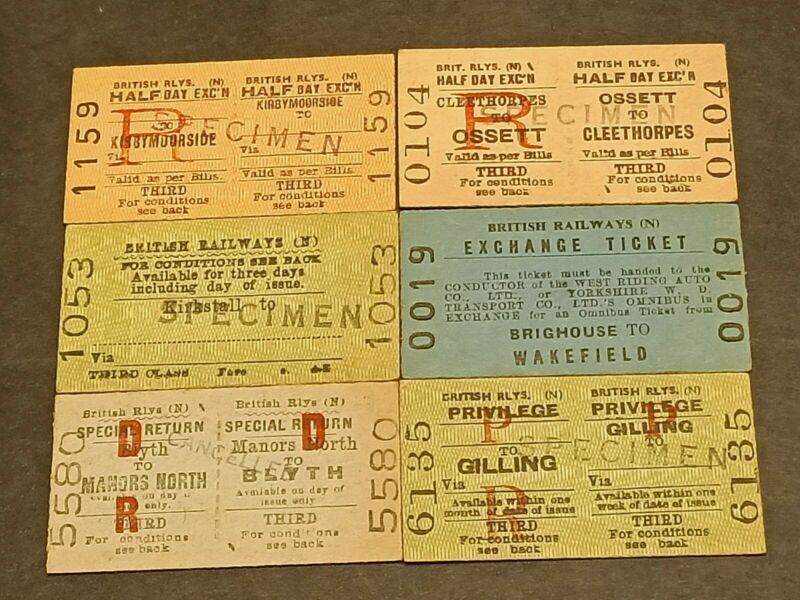 1159
BRITISH RLYS. (N)
HALF DAY EXC'N
TO
KIRBYMOORSIDE
Via
Valid as per Bills.
THIRD
For conditions
see back
R
BRITISH RLYS. (N)
HALF DAY EXC'N
KIRBYMOORSIDE
TO
Via
Valid as per Bills.
THIRD
For conditions
see back
SPECIMEN
1159
0104
BRIT. RLYS. (N)
HALF DAY EXC'N
CLEETHORPES
TO
OSSETT
Valid as per Bills
THIRD
For conditions
see back
R
BRITISH RLYS. (N)
HALF DAY EXC'N
OSSETT
TO
CLEETHORPES
Valid as per Bills
THIRD
For conditions
see back
SPECIMEN
0104
1053
BRITISH RAILWAYS (N)
FOR CONDITIONS SEE BACK
Available for three days
including day of issue.
Kirkstall to
SPECIMEN
Via
THIRD CLASS Fare
1053
0019
BRITISH RAILWAYS (N)
EXCHANGE TICKET
This ticket must be handed to the
CONDUCTOR of the WEST RIDING AUTO
CO., LTD., or YORKSHIRE W. D.
TRANSPORT CO., LTD.'S OMNIBUS in
EXCHANGE for an Omnibus Ticket from
BRIGHOUSE TO
WAKEFIELD
0019
5580
British Rlys (N)
SPECIAL RETURN
Blyth
TO
MANORS NORTH
Available on day of
issue only.
THIRD
For conditions
see back
D
R
British Rlys (N)
SPECIAL RETURN
Manors North
TO
BLYTH
Available on day of
issue only
THIRD
For conditions
see back
D
CANCELLED
5580
6135
BRITISH RLYS. (N)
PRIVILEGE
TO
GILLING
Via
Available within one
month of date of issue
THIRD
For conditions
see back
P
R
BRITISH RLYS. (N)
PRIVILEGE
GILLING
TO
Via
Available within one
week of date of issue
THIRD
For conditions
see back
P
SPECIMEN
6135